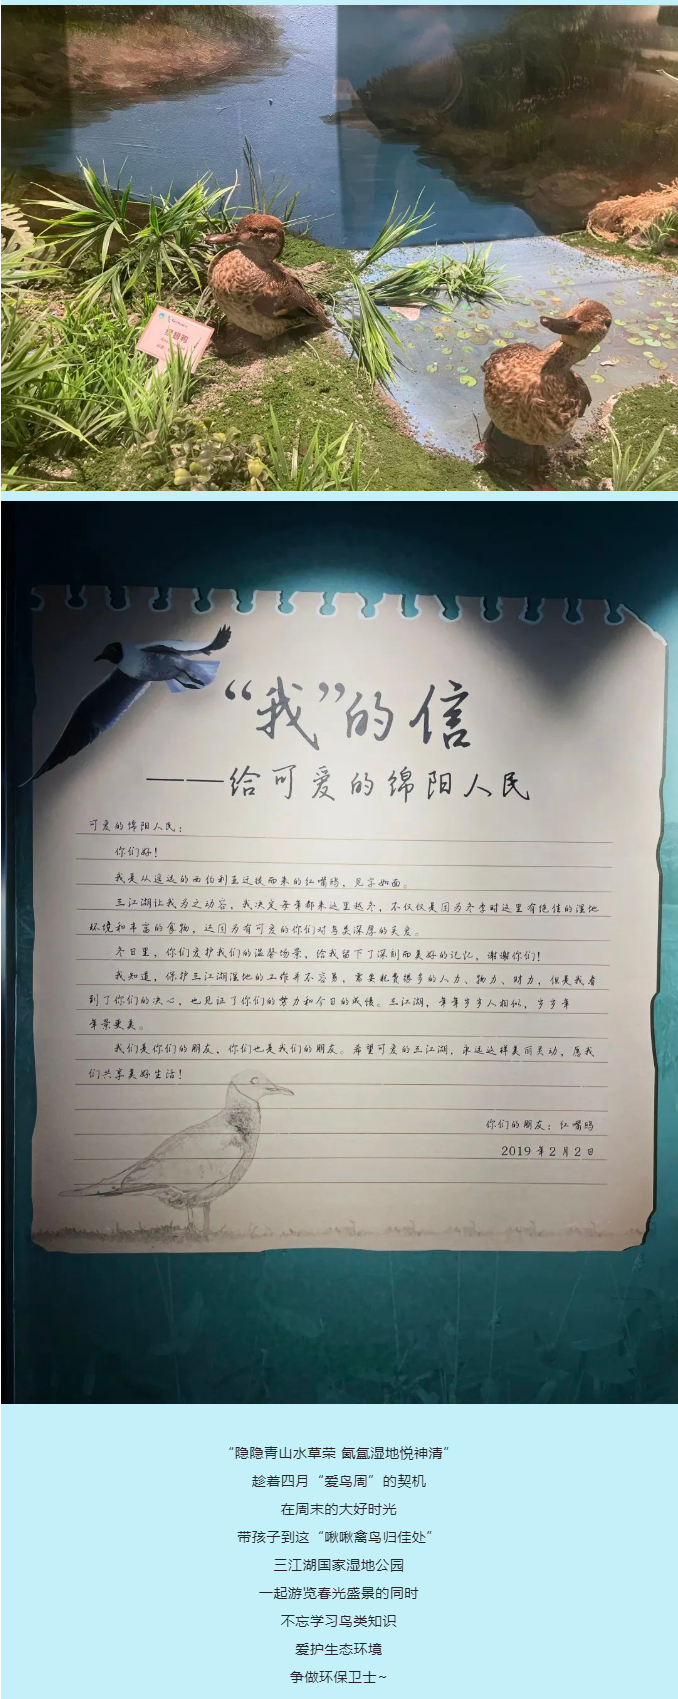 绿翅鸭
“我”的信
——给可爱的绵阳人民
可爱的绵阳人民：
你们好！
我是从遥远的西伯利亚迁徙而来的红嘴鸥，见字如面。
三江湖让我为之动容，我决定每年都来这里越冬，不仅仅是因为冬季时这里有绝佳的湿地
环境和丰富的食物，还因为有可爱的你们对鸟类深厚的关爱。
冬日里，你们爱护我们的温馨场景，给我留下了深刻而美好的记忆，谢谢你们！
我知道，保护三江湖湿地的工作并不容易，需要耗费很多的人力、物力、财力，但是我看
到了你们的决心，也见证了你们的努力和今日的成绩。三江湖，年年岁岁人相似，岁岁年
年景更美。
我们是你们的朋友，你们也是我们的朋友。希望可爱的三江湖，永远这样美丽灵动，愿我
们共享美好生活！
你们的朋友：红嘴鸥
2019年2月2日
“隐隐青山水草荣 氤氲湿地悦神清”
趁着四月“爱鸟周”的契机
在周末的大好时光
带孩子到这“啾啾禽鸟归佳处”
三江湖国家湿地公园
一起游览春光盛景的同时
不忘学习鸟类知识
爱护生态环境
争做环保卫士~